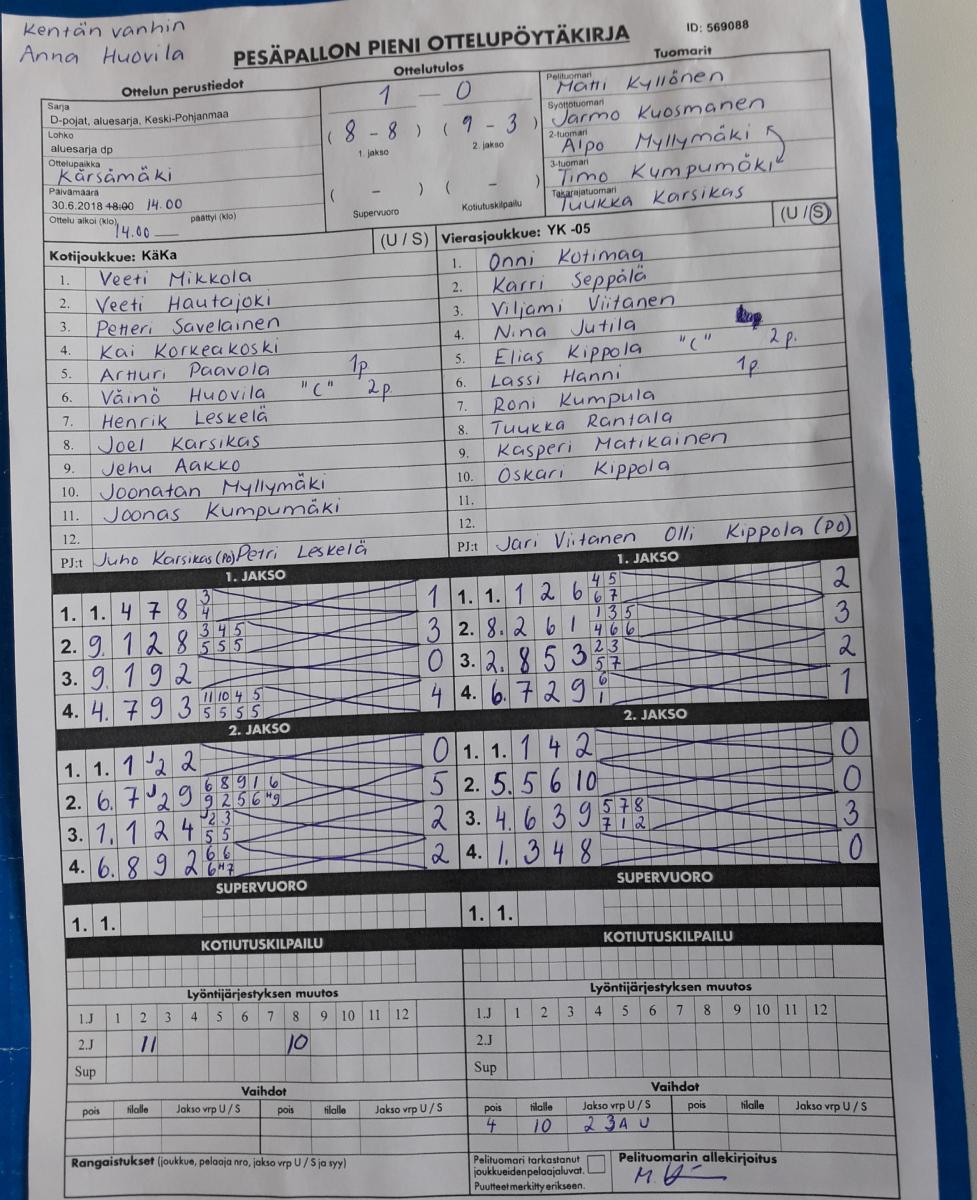 Kentän vanhin
Anna Huovila
ID: 569088
PESÄPALLON PIENI OTTELUPÖYTÄKIRJA
Ottelun perustiedot
Sarja
D-pojat, aluesarja, Keski-Pohjanmaa
Lohko
aluesarja dp
Ottelupaikka
Kärsämäki
Päivämäärä
30.6.2018 18:00 14.00
Ottelu alkoi (klo) päättyi (klo)
14.00
Ottelutulos
1 - 0
(8 - 8) (9 - 3)
1. jakso 2. jakso
( - ) ( - )
Supervuoro Kotiutuskilpailu
Tuomarit
Pelituomari
Matti Kyllönen
Syöttötuomari
Jarmo Kuosmanen
2-tuomari
Alpo Myllymäki
3-tuomari
Timo Kumpumäki
Takarajatuomari
Tuukka Karsikas
Kotijoukkue: KäKa (U / S)
1. Veeti Mikkola
2. Veeti Hautajoki
3. Petteri Savelainen
4. Kai Korkeakoski
5. Artturi Paavola 1p
6. Väinö Huovila "C" 2p
7. Henrik Leskelä
8. Joel Karsikas
9. Jehu Aakko
10. Joonatan Myllymäki
11. Joonas Kumpumäki
12.
PJ:t Juho Karsikas (PO) Petri Leskelä
Vierasjoukkue: YK -05 (U / S)
1. Onni Kotimaa
2. Karri Seppälä
3. Viljami Viitanen
4. Nina Jutila
5. Elias Kippola "C" 2p.
6. Lassi Hanni 1p
7. Roni Kumpula
8. Tuukka Rantala
9. Kasperi Matikainen
10. Oskari Kippola
11.
12.
PJ:t Jari Viitanen Olli Kippola (PO)
1. JAKSO
1. 1. 4 7 8 3 1
4
2. 9. 1 2 8 3 4 5 3
5 5 5
3. 9. 1 9 2 0
4. 4. 7 9 3 11 10 4 5 4
5 5 5 5
1. JAKSO
1. 1. 1 2 6 4 5 2
6 7
2. 8. 2 6 1 1 3 5 3
4 6 6
3. 2. 8 5 3 2 3 2
5 7
4. 6. 7 2 9 6 1
1
2. JAKSO
1. 1. 1 J2 2 0
2. 6. 7 J2 9 6 8 9 1 6 5
9 2 5 6 "9
3. 1. 1 2 4 J2 3 2
5 5
4. 6. 8 9 2 6 6 2
6 "7
2. JAKSO
1. 1. 1 4 2 0
2. 5. 5 6 10 0
3. 4. 6 3 9 5 7 8 3
7 1 2
4. 1. 3 4 8 0
SUPERVUORO
1. 1.
SUPERVUORO
1. 1.
KOTIUTUSKILPAILU
KOTIUTUSKILPAILU
Lyöntijärjestyksen muutos
1.J 1 2 3 4 5 6 7 8 9 10 11 12
2.J 11 10
Sup
Lyöntijärjestyksen muutos
1.J 1 2 3 4 5 6 7 8 9 10 11 12
2.J
Sup
Vaihdot
pois tilalle Jakso vrp U / S pois tilalle Jakso vrp U / S
Vaihdot
pois tilalle Jakso vrp U / S pois tilalle Jakso vrp U / S
4 10 2 3A U
Rangaistukset (joukkue, pelaaja nro, jakso vrp U / S ja syy)
Pelituomari tarkastanut
joukkueiden pelaajaluvat.
Puutteet merkitty erikseen.
Pelituomarin allekirjoitus